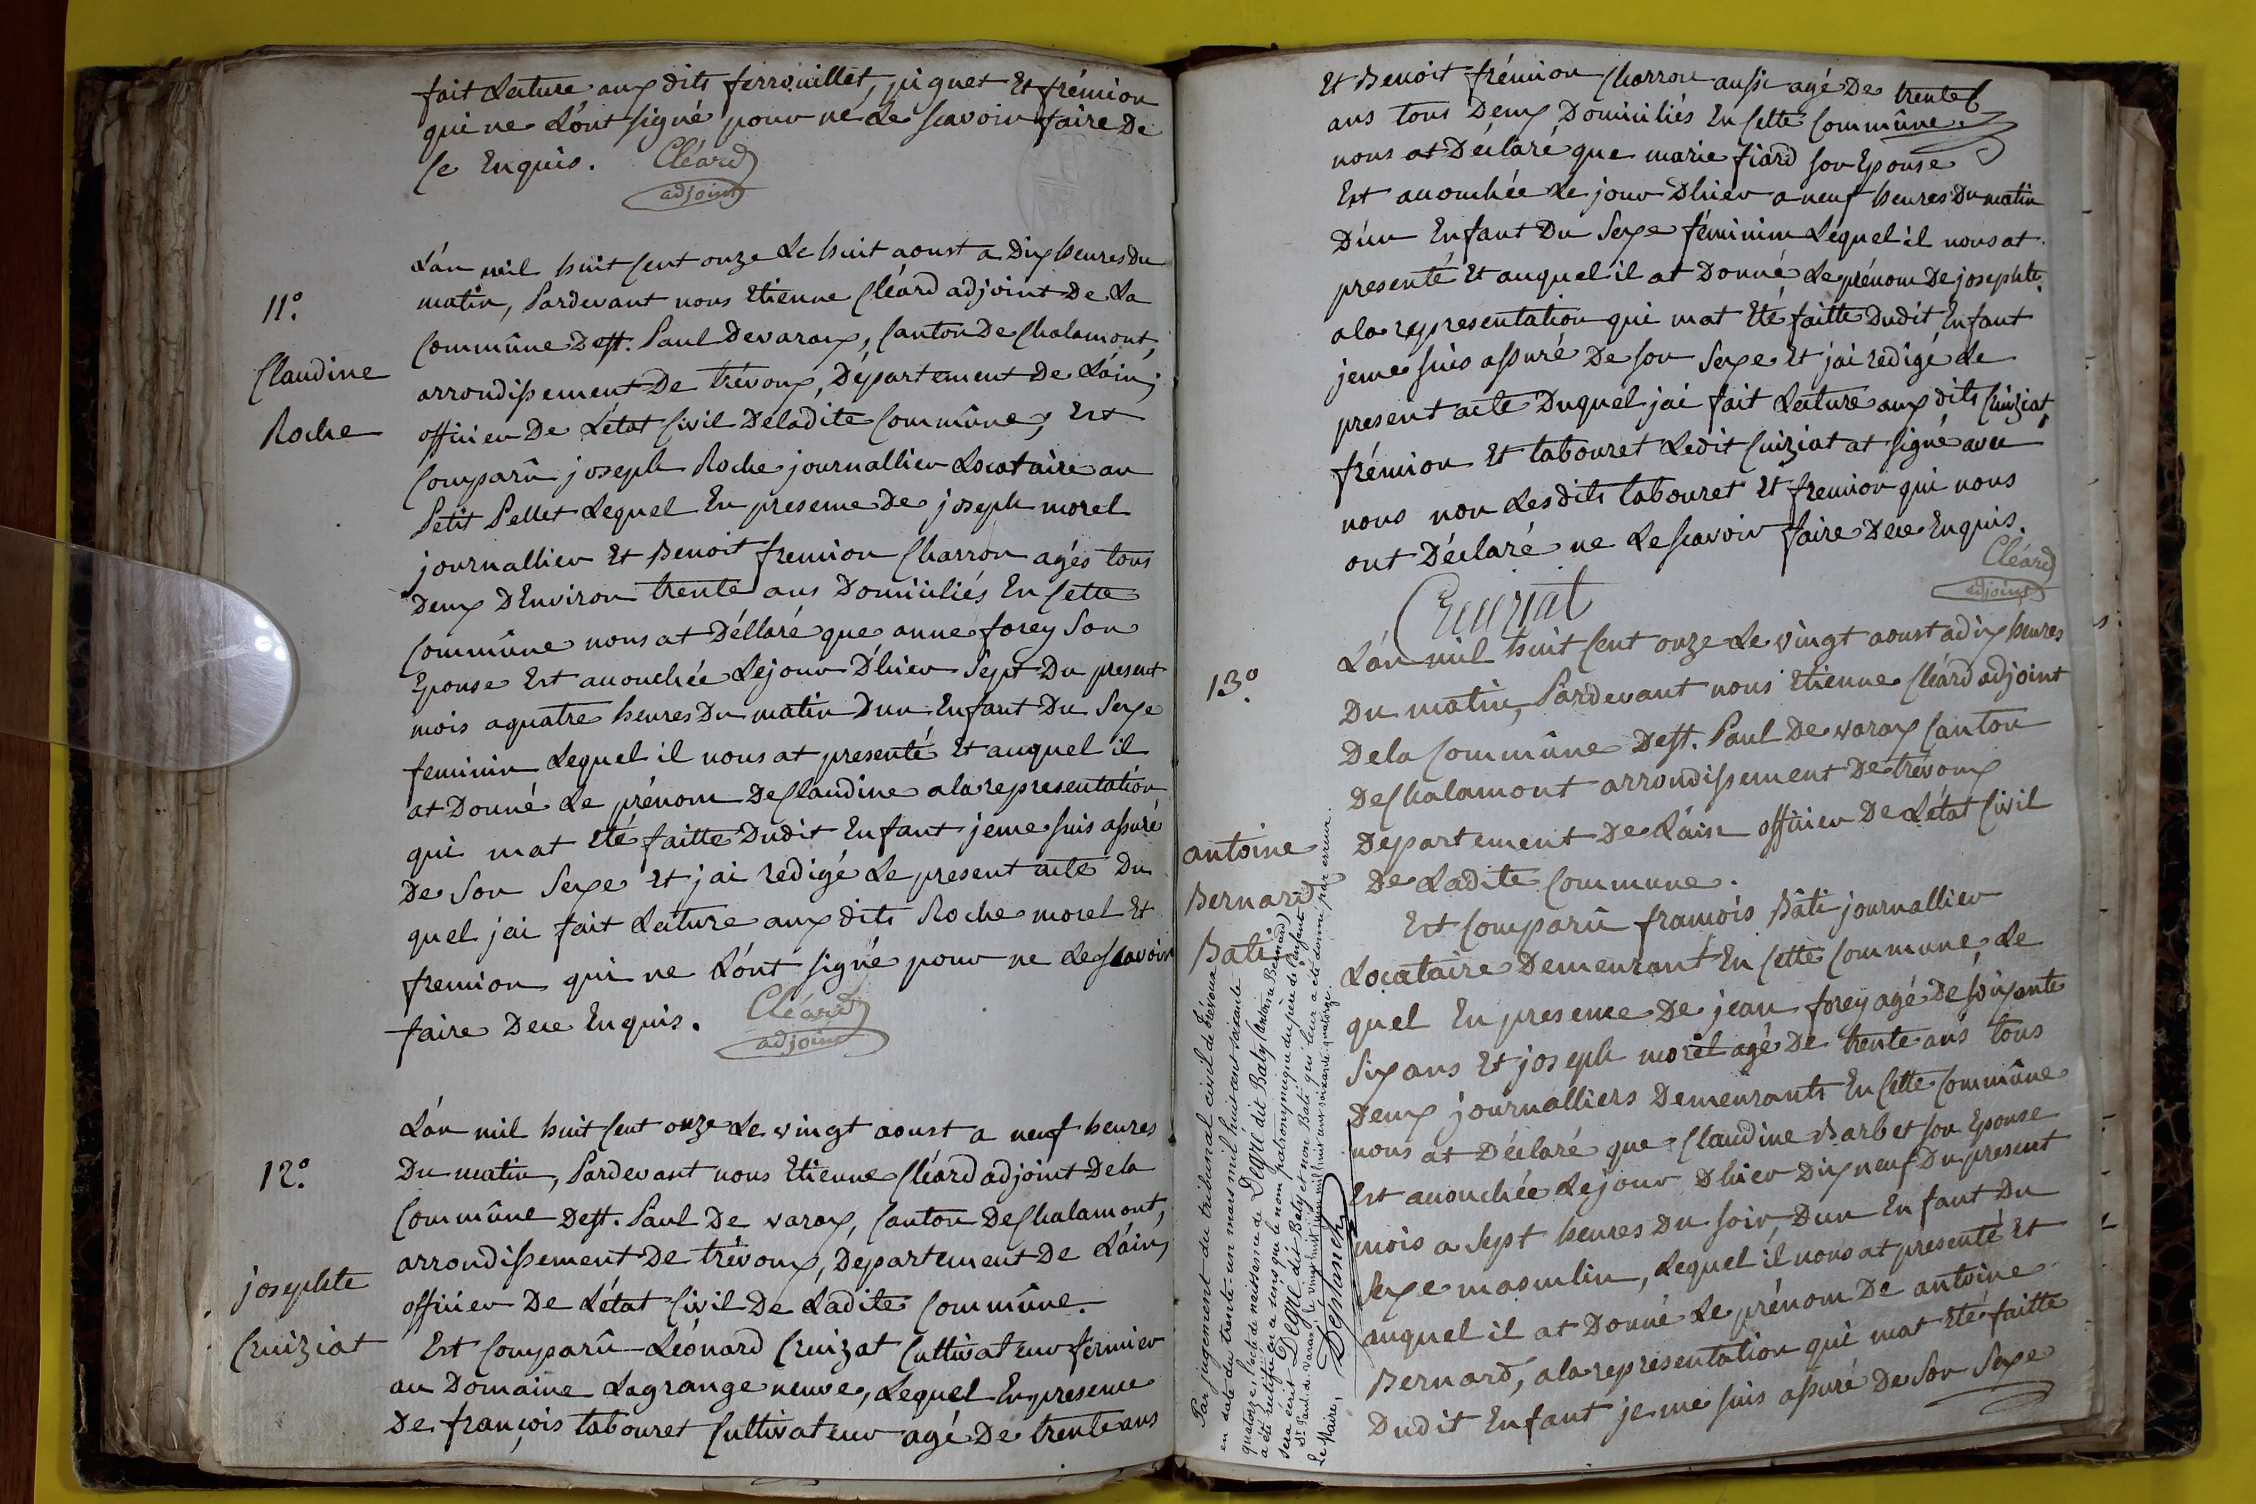 fait Lecture aux dits ferrouillet, piguet Et frémion
qui ne L'ont signé pour ne Le scavoir faire De
Ce Enquis. Cléard
adjoint
L'an mil huit Cent onze Le huit aoust a Dix heures Du
matin, Pardevant nous Etienne Cléard adjoint De La
11º.
Commûne Dest. Paul Devarax, Canton De Chalamont,
Claudine
arrondissement De trévoux, Département De L'ain,
Roche
officier De L'état Civil Deladite Commûne, Est
Comparû joseph Roche journallier Locataire au
Petit Pellet Lequel En presence De joseph morel
journallier Et Benoit fremion Charron agés tous
Deux D'Environ trente ans Domiciliés En Cette
Commûne nous at Déllaré que anne forey Son
Epouse Est accouchée Lejour D'hier Sept Du present
mois aquatre heures Du matin Dun Enfant Du Sexe
feminin Lequel il nous at presenté Et auquel il
at Donné Le prénom DeClaudine ala representation
qui mat Eté faitte Dudit Enfant jeme suis assuré
De Son Sexe Et jai redigé Le present acte Du
quel jai fait Lecture aux dits Roche morel Et
fremion qui ne L'ont signé pour ne Le scavoir
faire Dece Enquis. Cléard
adjoint
L'an mil huit Cent onze Le vingt aoust a neuf heures
12º.
Du matin, Pardevant nous Etienne Cléard adjoint Dela
Commûne Dest. Paul De varax, Canton DeChalamont,
arrondissement De trévoux, Departement De L'ain,
josephte
officier De L'état Civil De Ladite Commûne.
Cuiziat
Est Comparû Léonard Cuizat Cultivateur fermier
au Domaine Lagrange neuve, Lequel En présence
De françois tabouret Cultivateur agé De trente ans
Et Benoit frémion Charron aussi agé De trente
ans tous Deux Domiciliés En Cette Commûne
nous at Déclaré que marie fiard son Epouse
Est accouchée Le jour D'hier a neuf heures Du matin
D'un Enfant Du Sexe féminin Lequel il nous at
presenté Et auquel il at Donné Le prénom De josephte.
ala representation qui mat Eté faitte Dudit Enfant
jeme suis assuré De son Sexe Et jai redigé Le
present acte Duquel jai fait Lecture aux dits Cuiziat,
frémion Et tabouret Ledit Cuiziat at signé avec
nous non Lesdits tabouret Et fremion qui nous
ont Déclaré ne Le scavoir faire Dece Enquis.
Cléard
adjoint
Cuiziat
L'an mil huit Cent onze Le vingt aoust a dix heures
13º.
Du matin, Pardevant nous Etienne Cléard adjoint
Dela Commûne Dest. Paul De varax Canton
DeChalamont arrondissement De trévoux
Departement De L'ain officier De L'état Civil
antoine
Bernard
Bati
De Ladite Commune.
Est Comparû francois Bâti journallier
Locataire Demeurant En Cette Commune, Le
quel En presence De jean forey agé De soixante
Six ans Et joseph morel agé De trente ans tous
Deux journalliers Demeurants En Cette Commûne
nous at Déclaré que Claudine Barbet son Epouse
Est accouchée Lejour D'hier Dix neuf Du present
mois a Sept heures Du soir, Dun Enfant Du
Sexe masculin, Lequel il nous at presenté Et
auquel il at Donné Le prénom De antoine
Bernard, ala representation qui mat Eté faitte
Dudit Enfant je me suis assuré De Son Sexe
Par jugement du tribunal civil de Trévoux
en date du trente un mars mil huit cent soixante
quatorze, l'acte de naissance de Degré dit Baty (Antoine Bernard)
a été rectifié en ce sens que le nom patronymique du père de l'enfant
sera écrit Degré dit Baty et non Bati qui leur a été donné par erreur.
St Paul de Varax, le vingt huit mil huit cent soixante quatorze.
Le Maire,
Desplanch